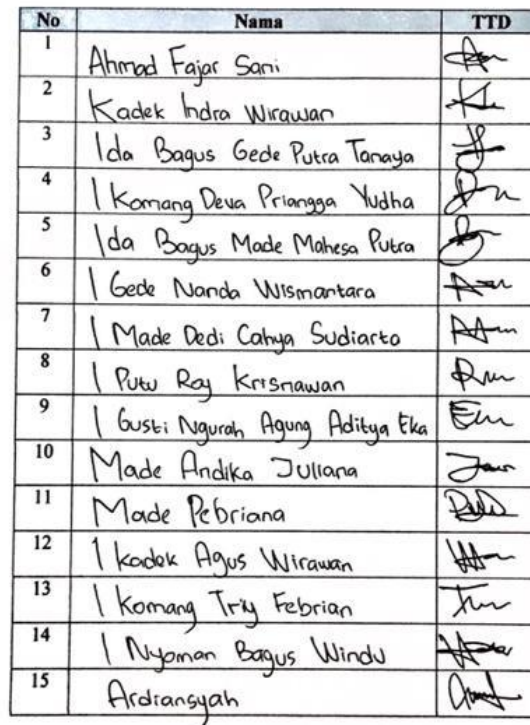 No Nama TTD
1 Ahmad Fajar Sani
2 Kadek Indra Wirawan
3 Ida Bagus Gede Putra Tanaya
4 I Komang Deva Priangga Yudha
5 Ida Bagus Made Mahesa Putra
6 I Gede Nanda Wismantara
7 I Made Dedi Cahya Sudiarto
8 I Putu Ray Krisnawan
9 I Gusti Ngurah Agung Aditya Eka
10 Made Andika Juliana
11 Made Pebriana
12 I kadek Agus Wirawan
13 I Komang Febrian
14 I Nyoman Bagus Windu
15 Ardiansyah